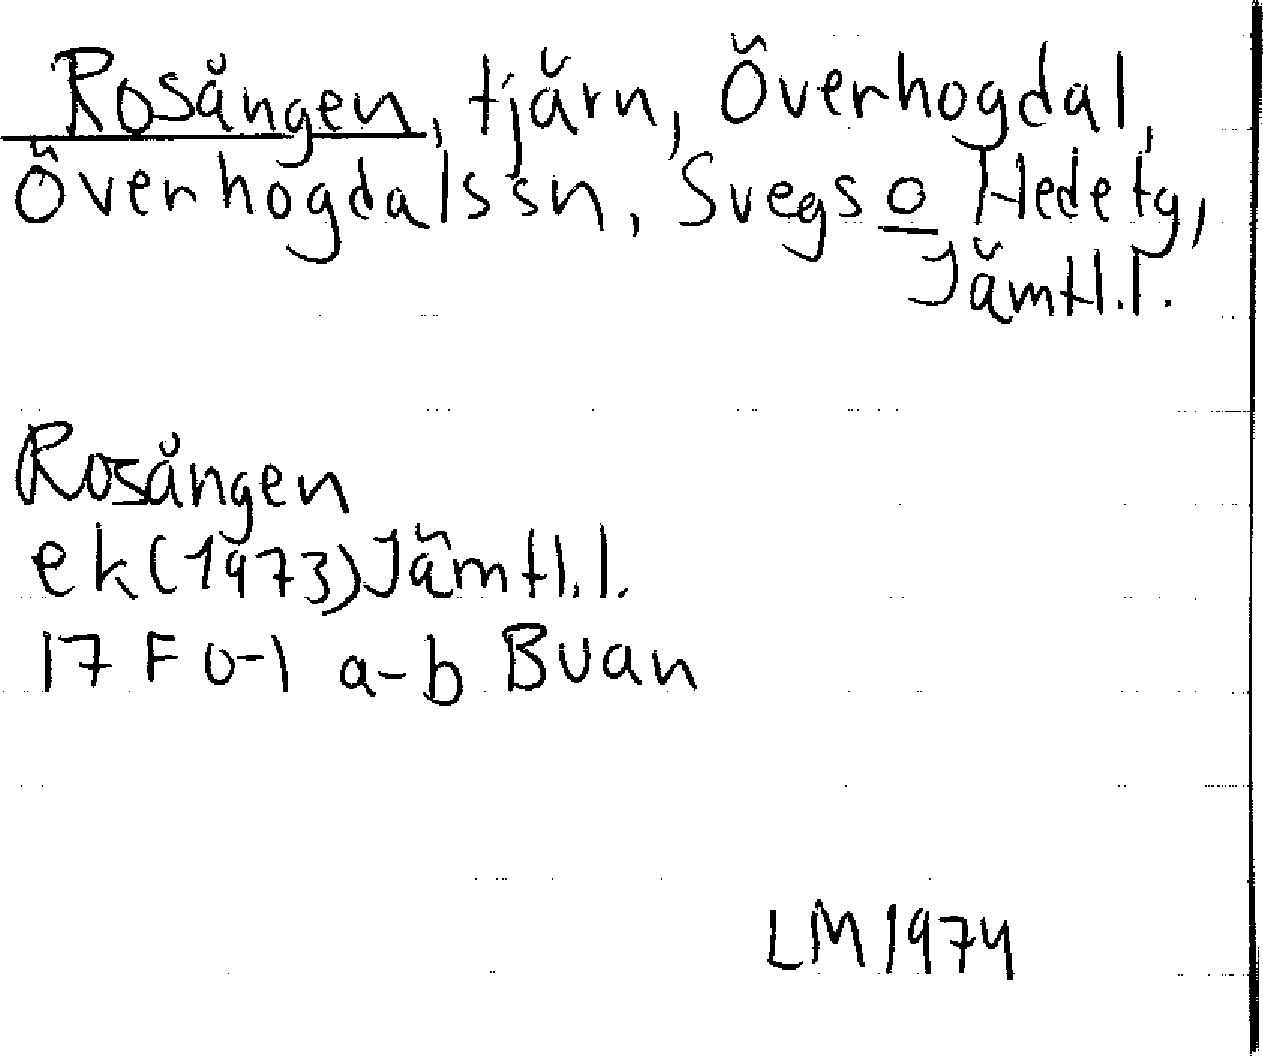 Rosängen, tjärn, Överhogdal,
Överhogdalssn, Svegs o Hedetg,
Jämtl.l.
Rosängen
ek(1973)Jämtl.l.
17 F 0-1 a-b Buan
LM 1974